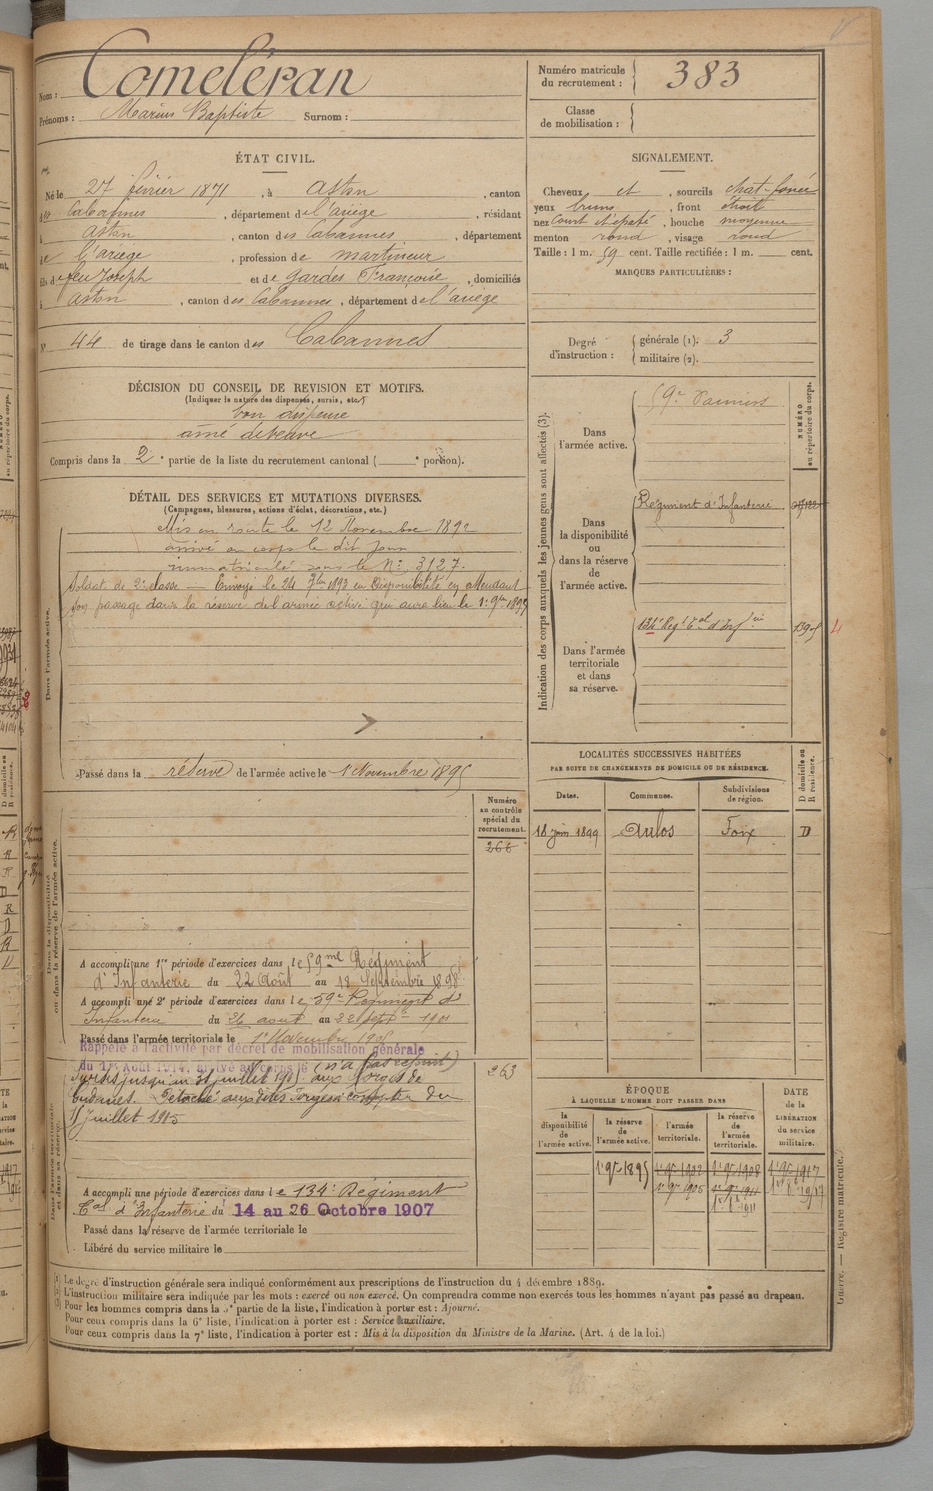 Nom : Comeléran
Prénoms : Marius Baptiste Surnom :
Numéro matricule du recrutement : 383
Classe de mobilisation :
ÉTAT CIVIL.
Né le 27 février 1871, à Aston, canton
des Cabannes, département de l'ariège, résidant
à aston, canton des Cabannes, département
de l'ariège, profession de martineur
fils de feu Joseph et de Gardes Françoise, domiciliés
à aston, canton des Cabannes, département de l'ariège
N° 44 de tirage dans le canton des Cabannes
SIGNALEMENT.
Cheveux et, sourcils chat-foncé
yeux bruns, front étroit
nez Court et épaté, bouche moyenne
menton rond, visage rond
Taille : 1 m. 59 cent. Taille rectifiée : 1 m. cent.
MARQUES PARTICULIÈRES :
Degré d'instruction :
générale (1). 3
militaire (2).
DÉCISION DU CONSEIL DE REVISION ET MOTIFS.
(Indiquer la nature des dispenses, sursis, etc.)
bon dispense
ainé de veuve
Compris dans la 2e partie de la liste du recrutement cantonal ( e portion).
DÉTAIL DES SERVICES ET MUTATIONS DIVERSES.
(Campagnes, blessures, actions d'éclat, décorations, etc.)
Dans l'armée active.
Mis en route le 12 Novembre 1892
arrivé au corps le dit jour
immatriculé sous le N° 3127.
Soldat de 2e classe — Envoyé le 24 7bre 1893 en Disponibilité en attendant
son passage dans la réserve de l'armée active qui aura lieu le 1er 9bre 1895
Passé dans la réserve de l'armée active le 1 Novembre 1895
Indication des corps auxquels les jeunes gens sont affectés (3).
NUMÉRO au répertoire du corps.
Dans l'armée active.
59e Pamiers
Dans la disponibilité ou dans la réserve de l'armée active.
Régiment d'Infanterie
Dans l'armée territoriale et dans sa réserve.
134e Regt Tal d'Infrie
1395
4
LOCALITÉS SUCCESSIVES HABITÉES
PAR SUITE DE CHANGEMENTS DE DOMICILE OU DE RÉSIDENCE.
Dates. Communes. Subdivisions de région. D domicile ou R résidence.
18 juin 1899 Aulos Foix D
Dans la disponibilité ou dans la réserve de l'armée active.
Numéro au contrôle spécial du recrutement.
266
A accompli une 1re période d'exercices dans le 59me Régiment
d'Infanterie du 22 Août au 18 Septembre 1898
A accompli une 2e période d'exercices dans le 59e Régiment d'
Infanterie du 26 aout au 22 septbre 1901
Passé dans l'armée territoriale le 1er Novembre 1905
Rappelé à l'activité par décret de mobilisation générale
du 1er Août 1914, arrivé au corps le (n'a pas rejoint)
Sursis jusqu'au 31 juillet 1915 aux Forges de
Détaché aux dites Forges à compter du
Juillet 1915
263
Dans l'armée territoriale et dans sa réserve.
A accompli une période d'exercices dans le 134e Régiment
Tal d'Infanterie du 14 au 26 Octobre 1907
Passé dans la réserve de l'armée territoriale le
Libéré du service militaire le
ÉPOQUE
À LAQUELLE L'HOMME DOIT PASSER DANS
DATE de la LIBÉRATION du service militaire.
la disponibilité de l'armée active. la réserve de l'armée active. l'armée territoriale. la réserve de l'armée territoriale.
1er 9bre 1895 1er 9bre 1902 1er 9bre 1908 1er 9bre 1917
1er 9bre 1905 1er 9bre 1911
(1) Le degré d'instruction générale sera indiqué conformément aux prescriptions de l'instruction du 4 décembre 1889.
(2) L'instruction militaire sera indiquée par les mots : exercé ou non exercé. On comprendra comme non exercés tous les hommes n'ayant pas passé au drapeau.
(3) Pour les hommes compris dans la 5e partie de la liste, l'indication à porter est : Ajourné.
Pour ceux compris dans la 6e liste, l'indication à porter est : Service auxiliaire.
Pour ceux compris dans la 7e liste, l'indication à porter est : Mis à la disposition du Ministre de la Marine. (Art. 4 de la loi.)
Guerre. — Registre matricule.